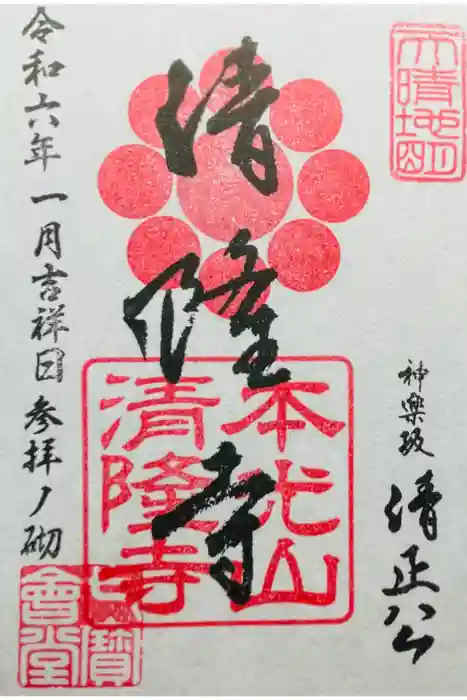 天晴地明
神楽坂 清正公
清隆寺
本光山
清隆寺
令和六年 一月吉祥日 参拝ノ砌
寶
會堂